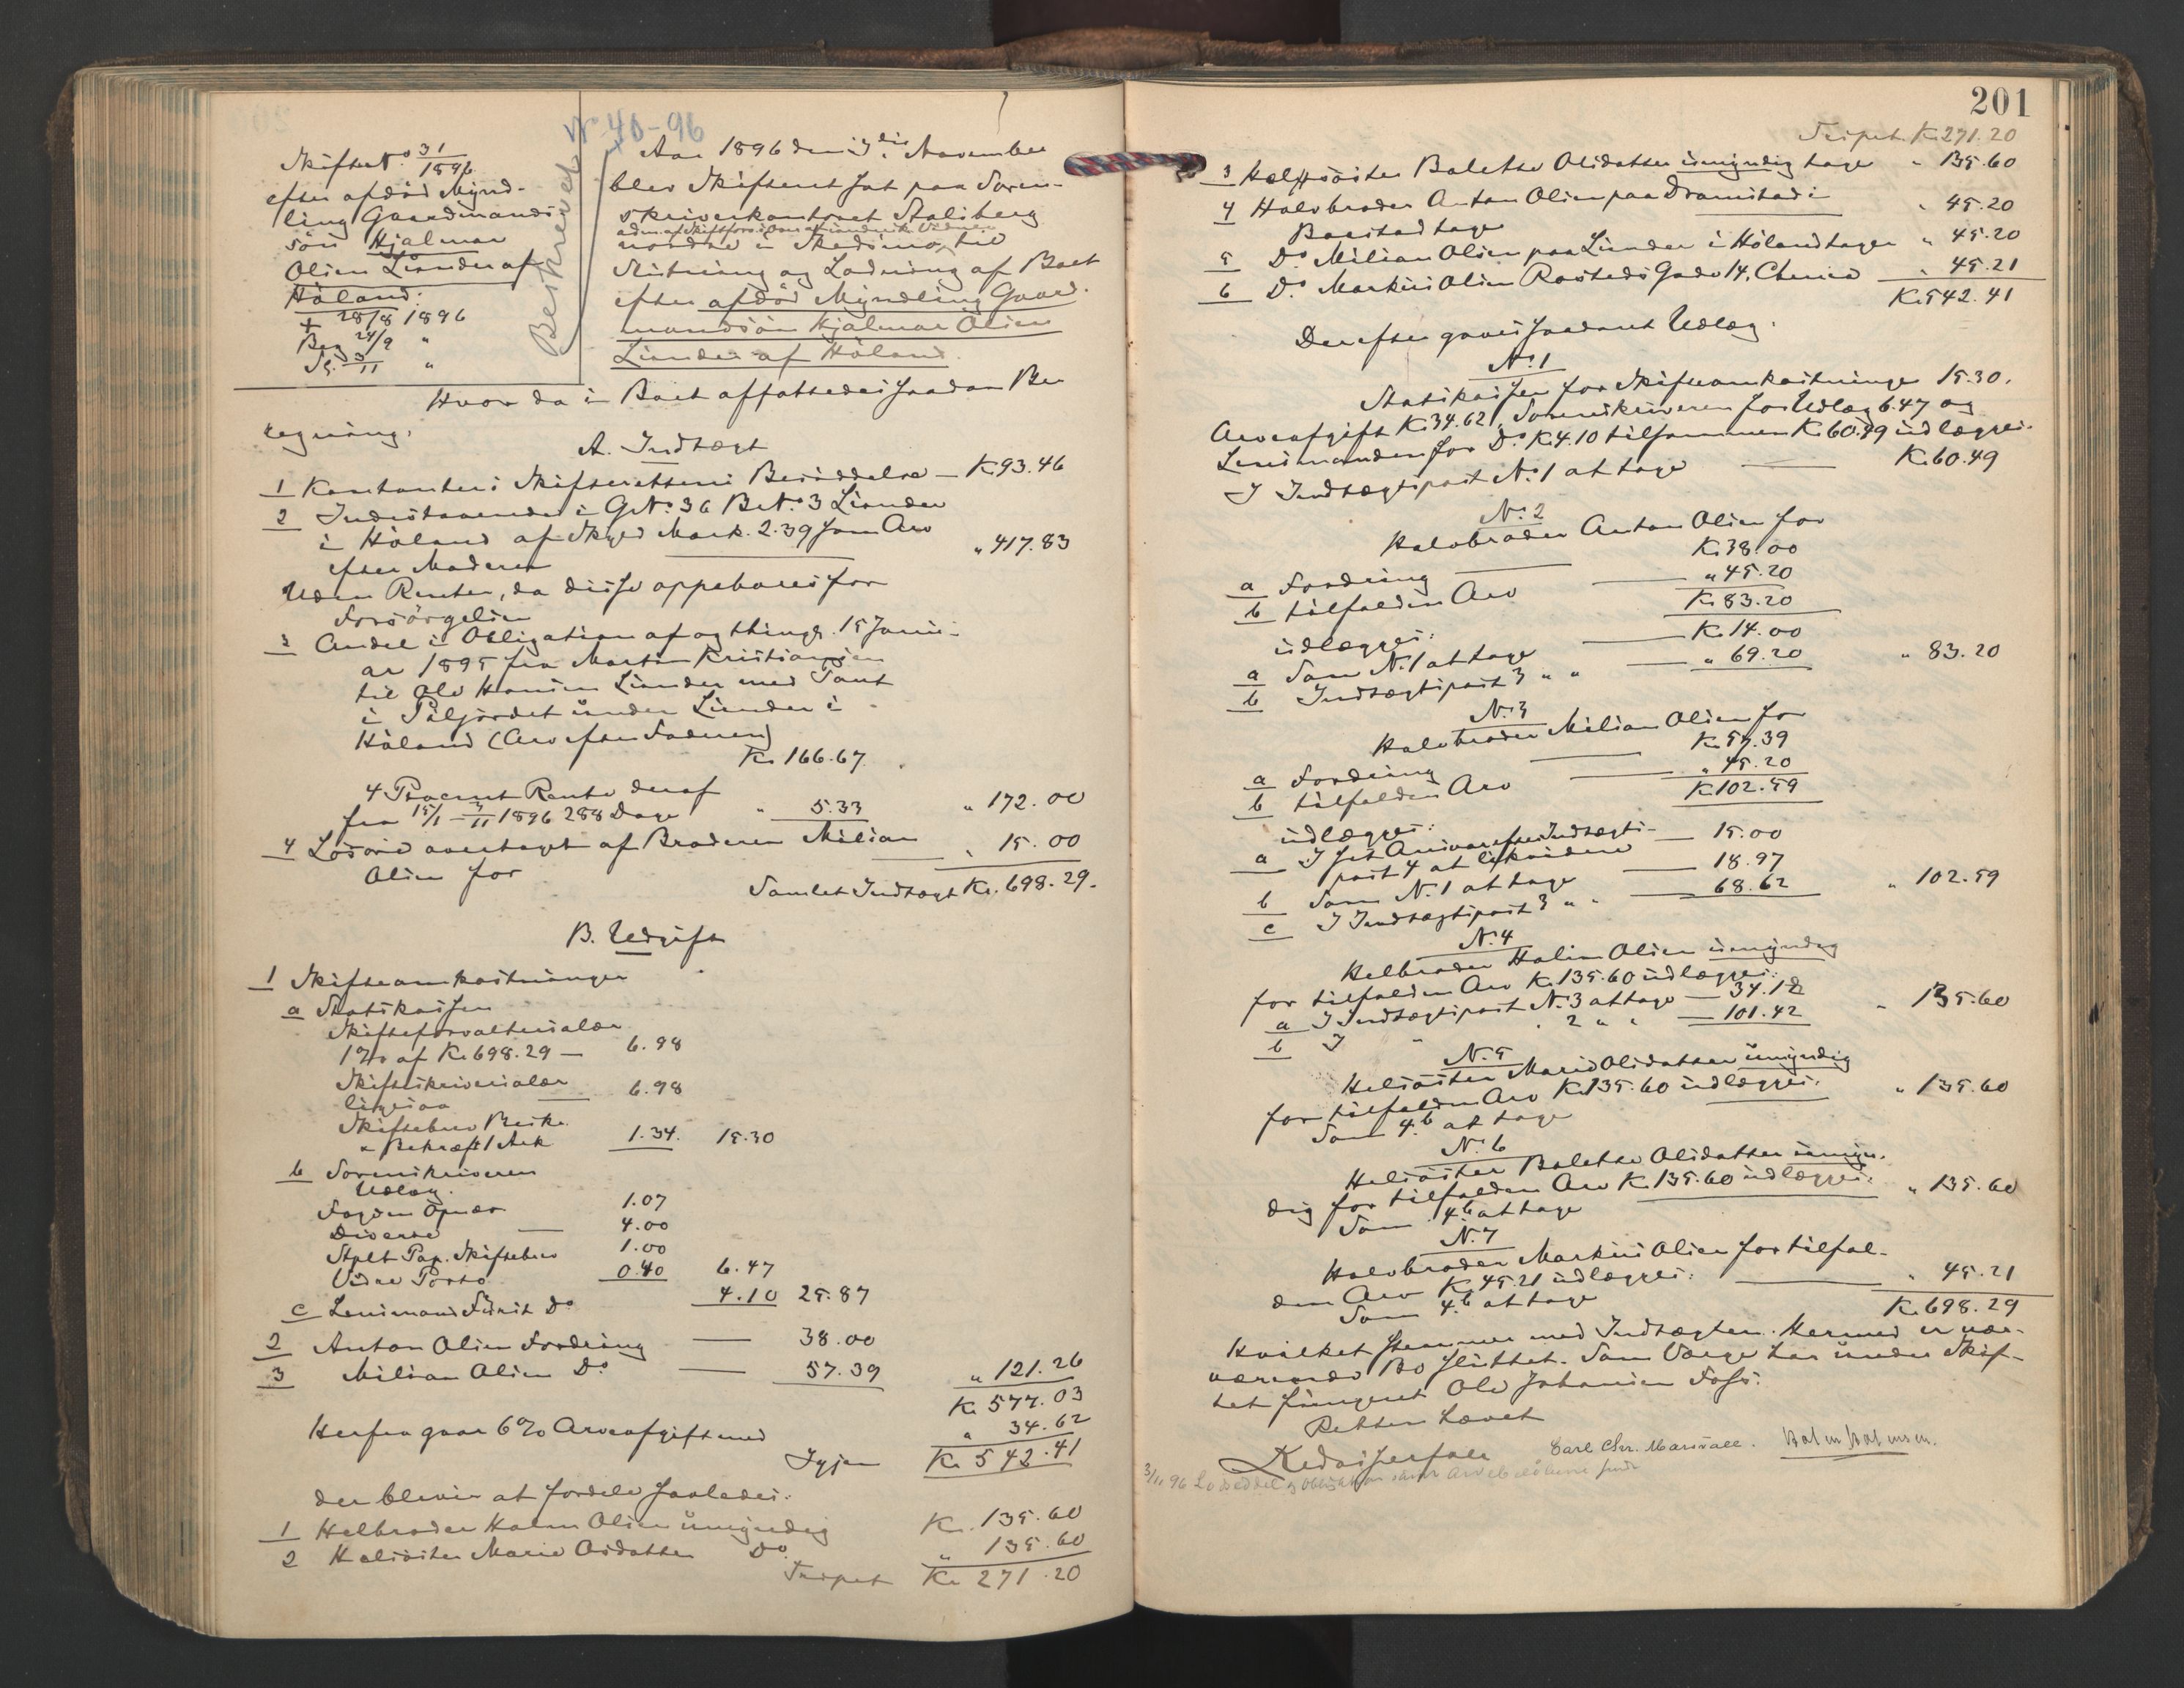 No 40-96
Skifte No 31/1896
efter afdöd Mynd-
ling Gaardmands-
sön Hjalmar
Olsen Liander af
Höland.
+ 28/8 1896
Beg 24/9 "
Sl. 3/11 "
Beskrevet
Aar 1896 den 3die November
blev Skifteret sat paa Soren-
skriverkontoret Stalsberg
adm. af Skiftforv. i Overv. af undersk. Vidner
nordre i Skedsmo, til
Slutning og Lodning af Boet
efter afdöd Myndling Gaard-
mandsön Hjalmar Olsen
Liander af Höland.
Hvor da i Boet affattedes saadan Be
regning.
A. Indtægt
1 Kontanter i Skifterettens Besiddelse — Kr 93.46
2 Indestaaende i GNo. 36 BrNo. 3 Liander
i Höland af Skyld Mark. 2.39 som Arv
efter Moderen " 417.83
Uden Renter, da disse oppebæres for
Forsörgelsen
3 Andel i Obligation af og thingl. 15 Janu-
ar 1895 fra Martin Kristiansen
til Ole Hansen Liander med Pant
i under Liander i
Höland (Arv efter Faderen)
Kr 166.67
4 Procent Rente deraf
fra 15/1 - 3/11 1896 288 Dage " 5.33 " 172.00
4 Lösöre overtaget af Broderen Milian
Olsen for " 15.00
Samlet Indtægt Kr. 698.29.
B. Udgift
1 Skifteomkostninger
a Statskassen
Skifteforvaltersalær
1% af Kr 698.29 — 6.98
Skifteskriversalær
ligesaa 6.98
Skiftebrev Besk.
& Bekræft 1 Ark 1.34. 15.30
b Sorenskriveren
Udlæg.
Fogden Opnær 1.07
Diverse 4.00
Stplt Pap. Skiftebrev 1.00
Vidne Porto 0.40 6.47
c Lensmand Do 4.10 25.87
2 Anton Olsen Fordring — 38.00
3 Milian Olsen Do — 57.39 " 121.26
Kr 577.03
Herfra gaar 6% Arveafgift med " 34.62
Igjen Kr 542.41
der blever at fordele saaledes:
1 Helbroder Halm Olsen umyndig Kr. 135.60
2 Helsöster Marie Olsdatter Do " 135.60
Transport Kr 271.20
201
Transport Kr 271.20
3 Helsöster Bolette Olsdatter umyndig tager " 135.60
4 Halvbroder Anton Olsen paa Dramstad i
Baastad tager " 45.20
5 Do Milian Olsen paa Liander i Höland tager " 45.20
6 Do Markus Olsen Rosteds Gade 14, Chania " 45.21
Kr 542.41
Derefter gaves saadant Udlæg.
No. 1
Statskassen for Skifteomkostninger 15.30.
Arveafgift Kr 34.62, Sorenskriveren for Udlæg 6.47 og
Lensmanden for Do Kr 4.10 tilsammen Kr 60.49 udlægges:
I Indtægtspost No. 1 at tage — Kr 60.49
No. 2
Halvbroder Anton Olsen for
a Fordring Kr 38.00
b tilfalden Arv " 45.20
Kr 83.20
udlægges:
a Som No. 1 at tage Kr 14.00
b Indtægtspost 3 " " " 69.20 " 83.20
No. 3
Halvbroder Milian Olsen for
a Fordring Kr 57.39
b tilfalden Arv " 45.20
Kr 102.59
udlægges:
a I sit Ansvar efter Indtægts-
post 4 at likvidere — 15.00
b Som No. 1 at tage 18.97
c I Indtægtspost 3 " " 68.62 " 102.59
No. 4
Helbroder Halm Olsen umyndig
for tilfalden Arv Kr 135.60 udlægges:
a I Indtægtspost No. 3 at tage — 34.18
b I " " 2 " " — 101.42 " 135.60
No. 5
Helsöster Marie Olsdatter umyndig
for tilfalden Arv Kr 135.60 udlægges:
Som 4b at tage " 135.60
No. 6
Helsöster Bolette Olsdatter umyn-
dig for tilfalden Arv Kr 135.60 udlægges:
Som 4b at tage " 135.60
No. 7
Halvbroder Markus Olsen for tilfal-
den Arv Kr 45.21 udlægges:
Som 4b at tage " 45.21
Kr 698.29
Hvilket stemmer med Indtægten. Hermed er nær-
værende Bo sluttet. Som Værge har under Skif-
tet fungeret Ole Johansen Foss.
Retten hævet
Carl Chr. Halm Halmsen.
3/11 96 Lodseddel & Obligation samt Arvebeløbene